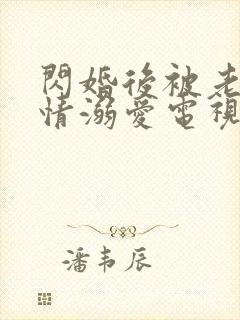 閃婚後被老
情溺愛電視
潘韦辰